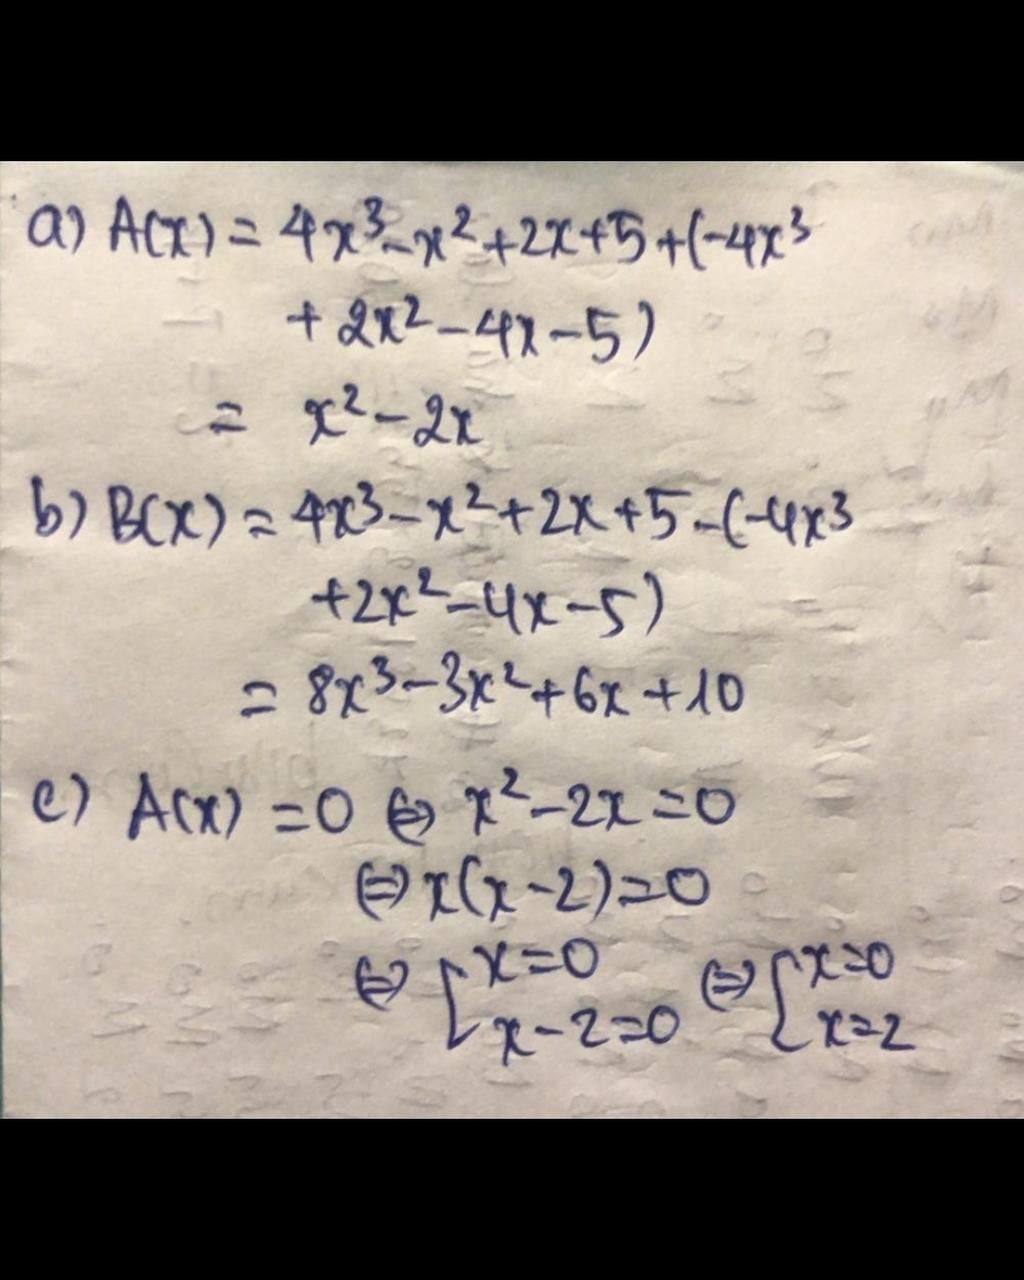 a) A(x) = 4x³ - x² + 2x + 5 + (-4x³
+ 2x² - 4x - 5)
= x² - 2x
b) B(x) = 4x³ - x² + 2x + 5 - (-4x³
+ 2x² - 4x - 5)
= 8x³ - 3x² + 6x + 10
c) A(x) = 0 ⇔ x² - 2x = 0
⇔ x(x - 2) = 0
⇔ [ x = 0 ⇔ [ x = 0
x - 2 = 0 x = 2